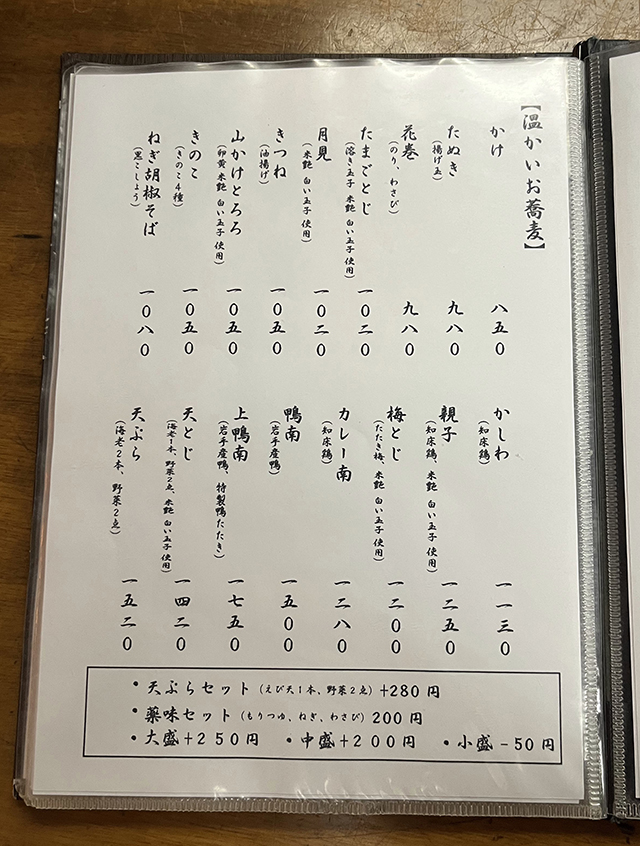 【温かいお蕎麦】
かけ 八五0
たぬき 九八0
(揚げ玉)
花巻 九八0
(のり、わさび)
たまごとじ 一0二0
(溶き玉子 米艶 白い玉子 使用)
月見 一0二0
(米艶 白い玉子 使用)
きつね 一0五0
(油揚げ)
山かけとろろ 一0五0
(卵黄 米艶 白い玉子 使用)
きのこ 一0五0
(きのこ4種)
ねぎ胡椒そば 一0八0
(黒こしょう)
かしわ 一一三0
(知床鶏)
親子 一二五0
(知床鶏、米艶 白い玉子 使用)
梅とじ 一二00
(たたき梅、米艶 白い玉子 使用)
カレー南 一二八0
(知床鶏)
鴨南 一五00
(岩手産鴨)
上鴨南 一七五0
(岩手産鴨、特製鴨たたき)
天とじ 一四二0
(海老1本、野菜2点、米艶 白い玉子 使用)
天ぷら 一五二0
(海老2本、野菜2点)
・天ぷらセット(えび天1本、野菜2点)+280円
・薬味セット(もりつゆ、ねぎ、わさび)200円
・大盛+250円 ・中盛+200円 ・小盛-50円